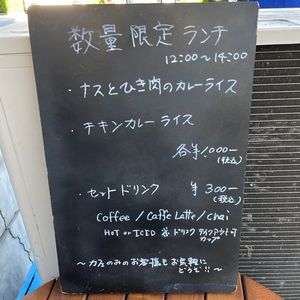 数量限定ランチ
12:00〜14:00
・ナスとひき肉のカレーライス
・チキンカレーライス
各¥1,000−
(税込)
・セットドリンク ¥300−
(税込)
Coffee / Caffe Latte / Chai
HOT or ICED ※ドリンクテイクアウト
カップ
〜カフェのみのお客様もお気軽に
どうぞ!!〜